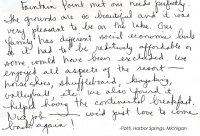 Fountain Point met our needs perfectly.
The grounds are so beautiful and it was
very pleasant to be on the lake. Our
family has different social economic lives
so it had to be relatively affordable or
some would have been excluded. We
enjoyed all aspects of the resort —
horseshoes, shuffleboard, kayaking,
volleyball, etc. we also found it
helped having the continental breakfast.
Nice job — we'd just love to come
back again!
-Patti, Harbor Springs, Michigan